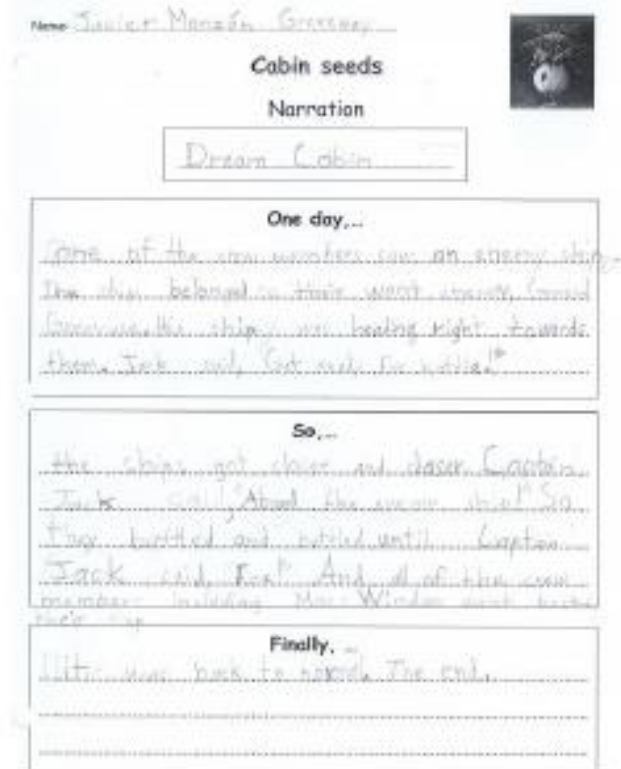 Name: Javier Monzón
Cabin seeds
Narration
Dream Cabin
One day,...
one of the crew members saw an enemy ship.
The ship belonged to their worst enemy,
ships was heading right towards
them. Jack said, Get ready for battle!"
So,...
the ships got closer and closer. Captain
Jack said, the enemy ship!" So
they battled and battled until Captain
Jack said, And all of the crew
members including Max went back to
their
Finally, ...
life was back to normal. The end.